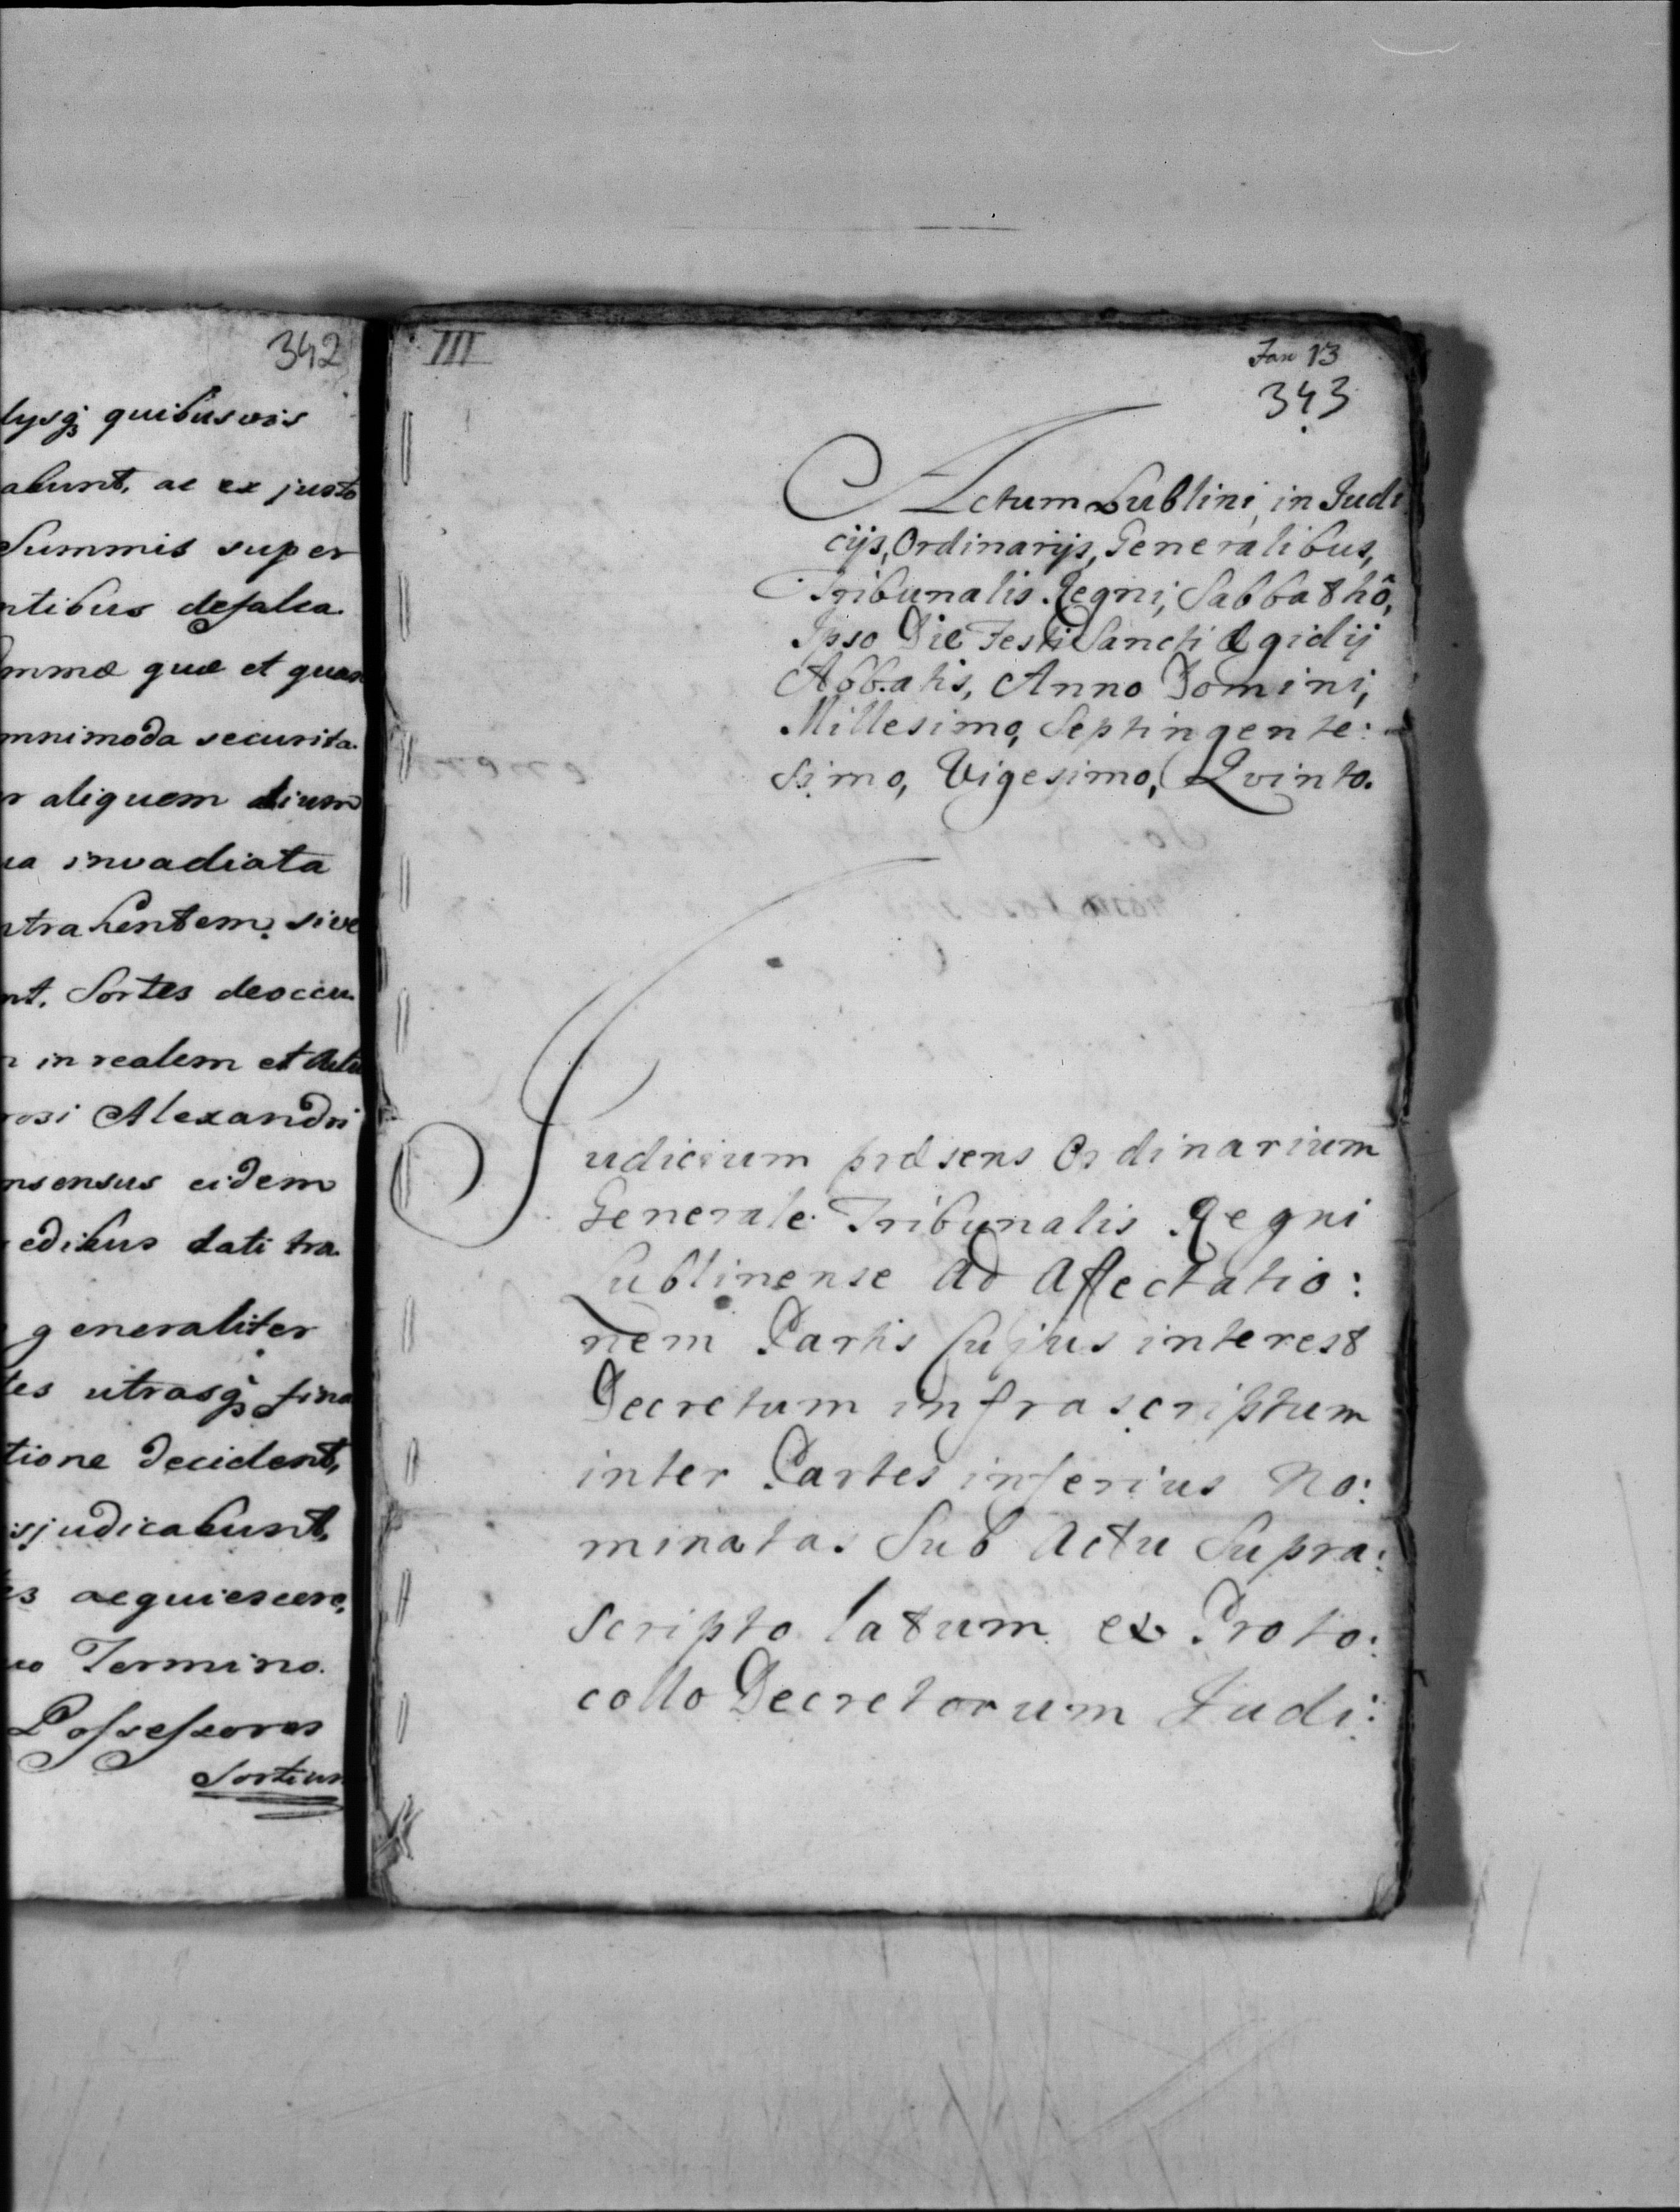 342
lysq; quibusvis
abunt, ac ex justo
Summis super
ntibus defalca
ommæ quæ et quan
mnimoda securita.
r aliquem alium
ua invadiata
ntrahentem, sive
nt. Sortes deoccu.
in realem et
rosi Alexandri
nsensus eidem
edibus dati tra.
generaliter
tes utrasq; fina
tione decident,
sjudicabunt,
es acquiescere,
eo Termino.
Possessores
Sortium
III
Fan 13
343
Actum Lublini, in Judi
cijs, Ordinarijs, Generalibus,
Tribunalis Regni, Sabbathô,
Ipso Die Festi Sancti Ægidij
Abbatis, Anno Domini,
Millesimo, Septingente:
Ssimo, Vigesimo, Qvinto.
Judicium præsens Ordinarium
Generale Tribunalis Regni
Lublinense Ad Affectatio:
nem Partis Cujus interest
Decretum infrascriptum
inter Partes inferius No:
minatas Sub Actu Supra:
scripto latum ex Proto:
collo Decretorum Judi: